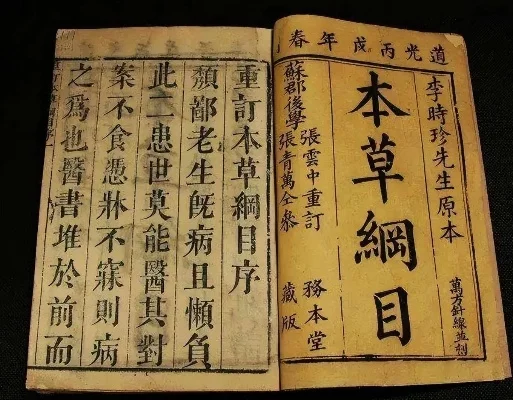 道光丙戌年春
李時珍先生原本
萬方針線並刻
本草綱目
蘇郡後學
張雲中重訂
張青萬仝參
務本堂
藏版
重訂本草綱目序
頽鄙老生旣病且懶負
此二患世莫能醫其對
案不食憑牀不寐則病
之爲也醫書堆於前而